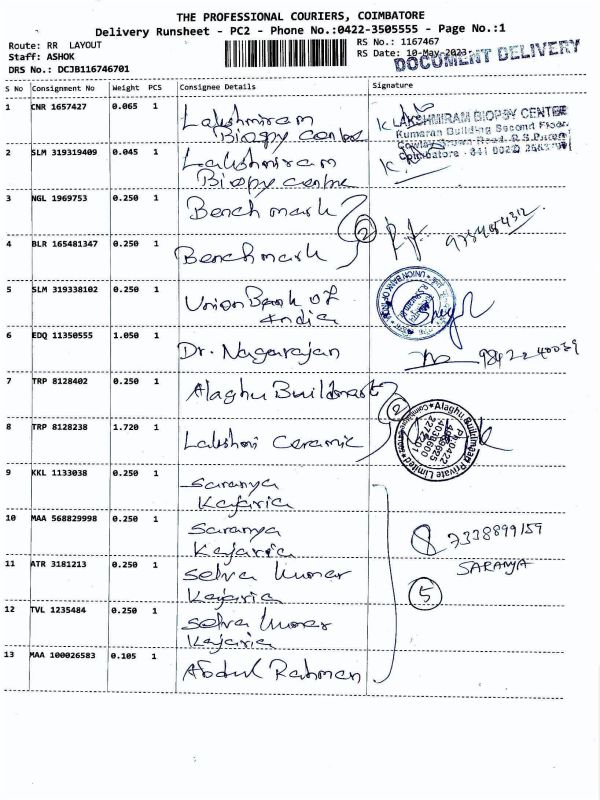 THE PROFESSIONAL COURIERS, COIMBATORE
Delivery Runsheet - PC2 - Phone No.:0422-3505555 - Page No.:1
Route: RR LAYOUT
Staff: ASHOK
DRS No.: DCJB116746701
RS No.: 1167467
RS Date: 10-May-2023
DOCUMENT DELIVERY
S No Consignment No Weight PCS Consignee Details Signature
1 CNR 1657427 0.065 1 Lakshmiram
Biopsy centre
LAKSHMIRAM BIOPSY CENTRE
Kumaran Building Second Floor
Cowley Brown Road R.S.Puram
Coimbatore - 641 002
2 SLM 319319409 0.045 1 Lakshmiram
Biopsy centre
3 NGL 1969753 0.250 1 Bench mark
2
4 BLR 165481347 0.250 1 Benchmark
5 SLM 319338102 0.250 1 Union Bank of
India
UNION BANK OF INDIA
6 EDQ 11350555 1.050 1 Dr. Nagarajan
98422 40039
7 TRP 8128402 0.250 1 Alaghu Buildmart
2
8 TRP 8128238 1.720 1 Lakshmi Ceramic
Alaghu Buildmaart Private Limited
Ph:0422
9 KKL 1133038 0.250 1 Saranya
Kajaria
10 MAA 568829998 0.250 1 Saranya
Kajaria
7338899159
SARANYA
11 ATR 3181213 0.250 1 Selva kumar
Kajaria
5
12 TVL 1235484 0.250 1 Selva kumar
Kajaria
13 MAA 100026583 0.105 1 Abdul Rahman